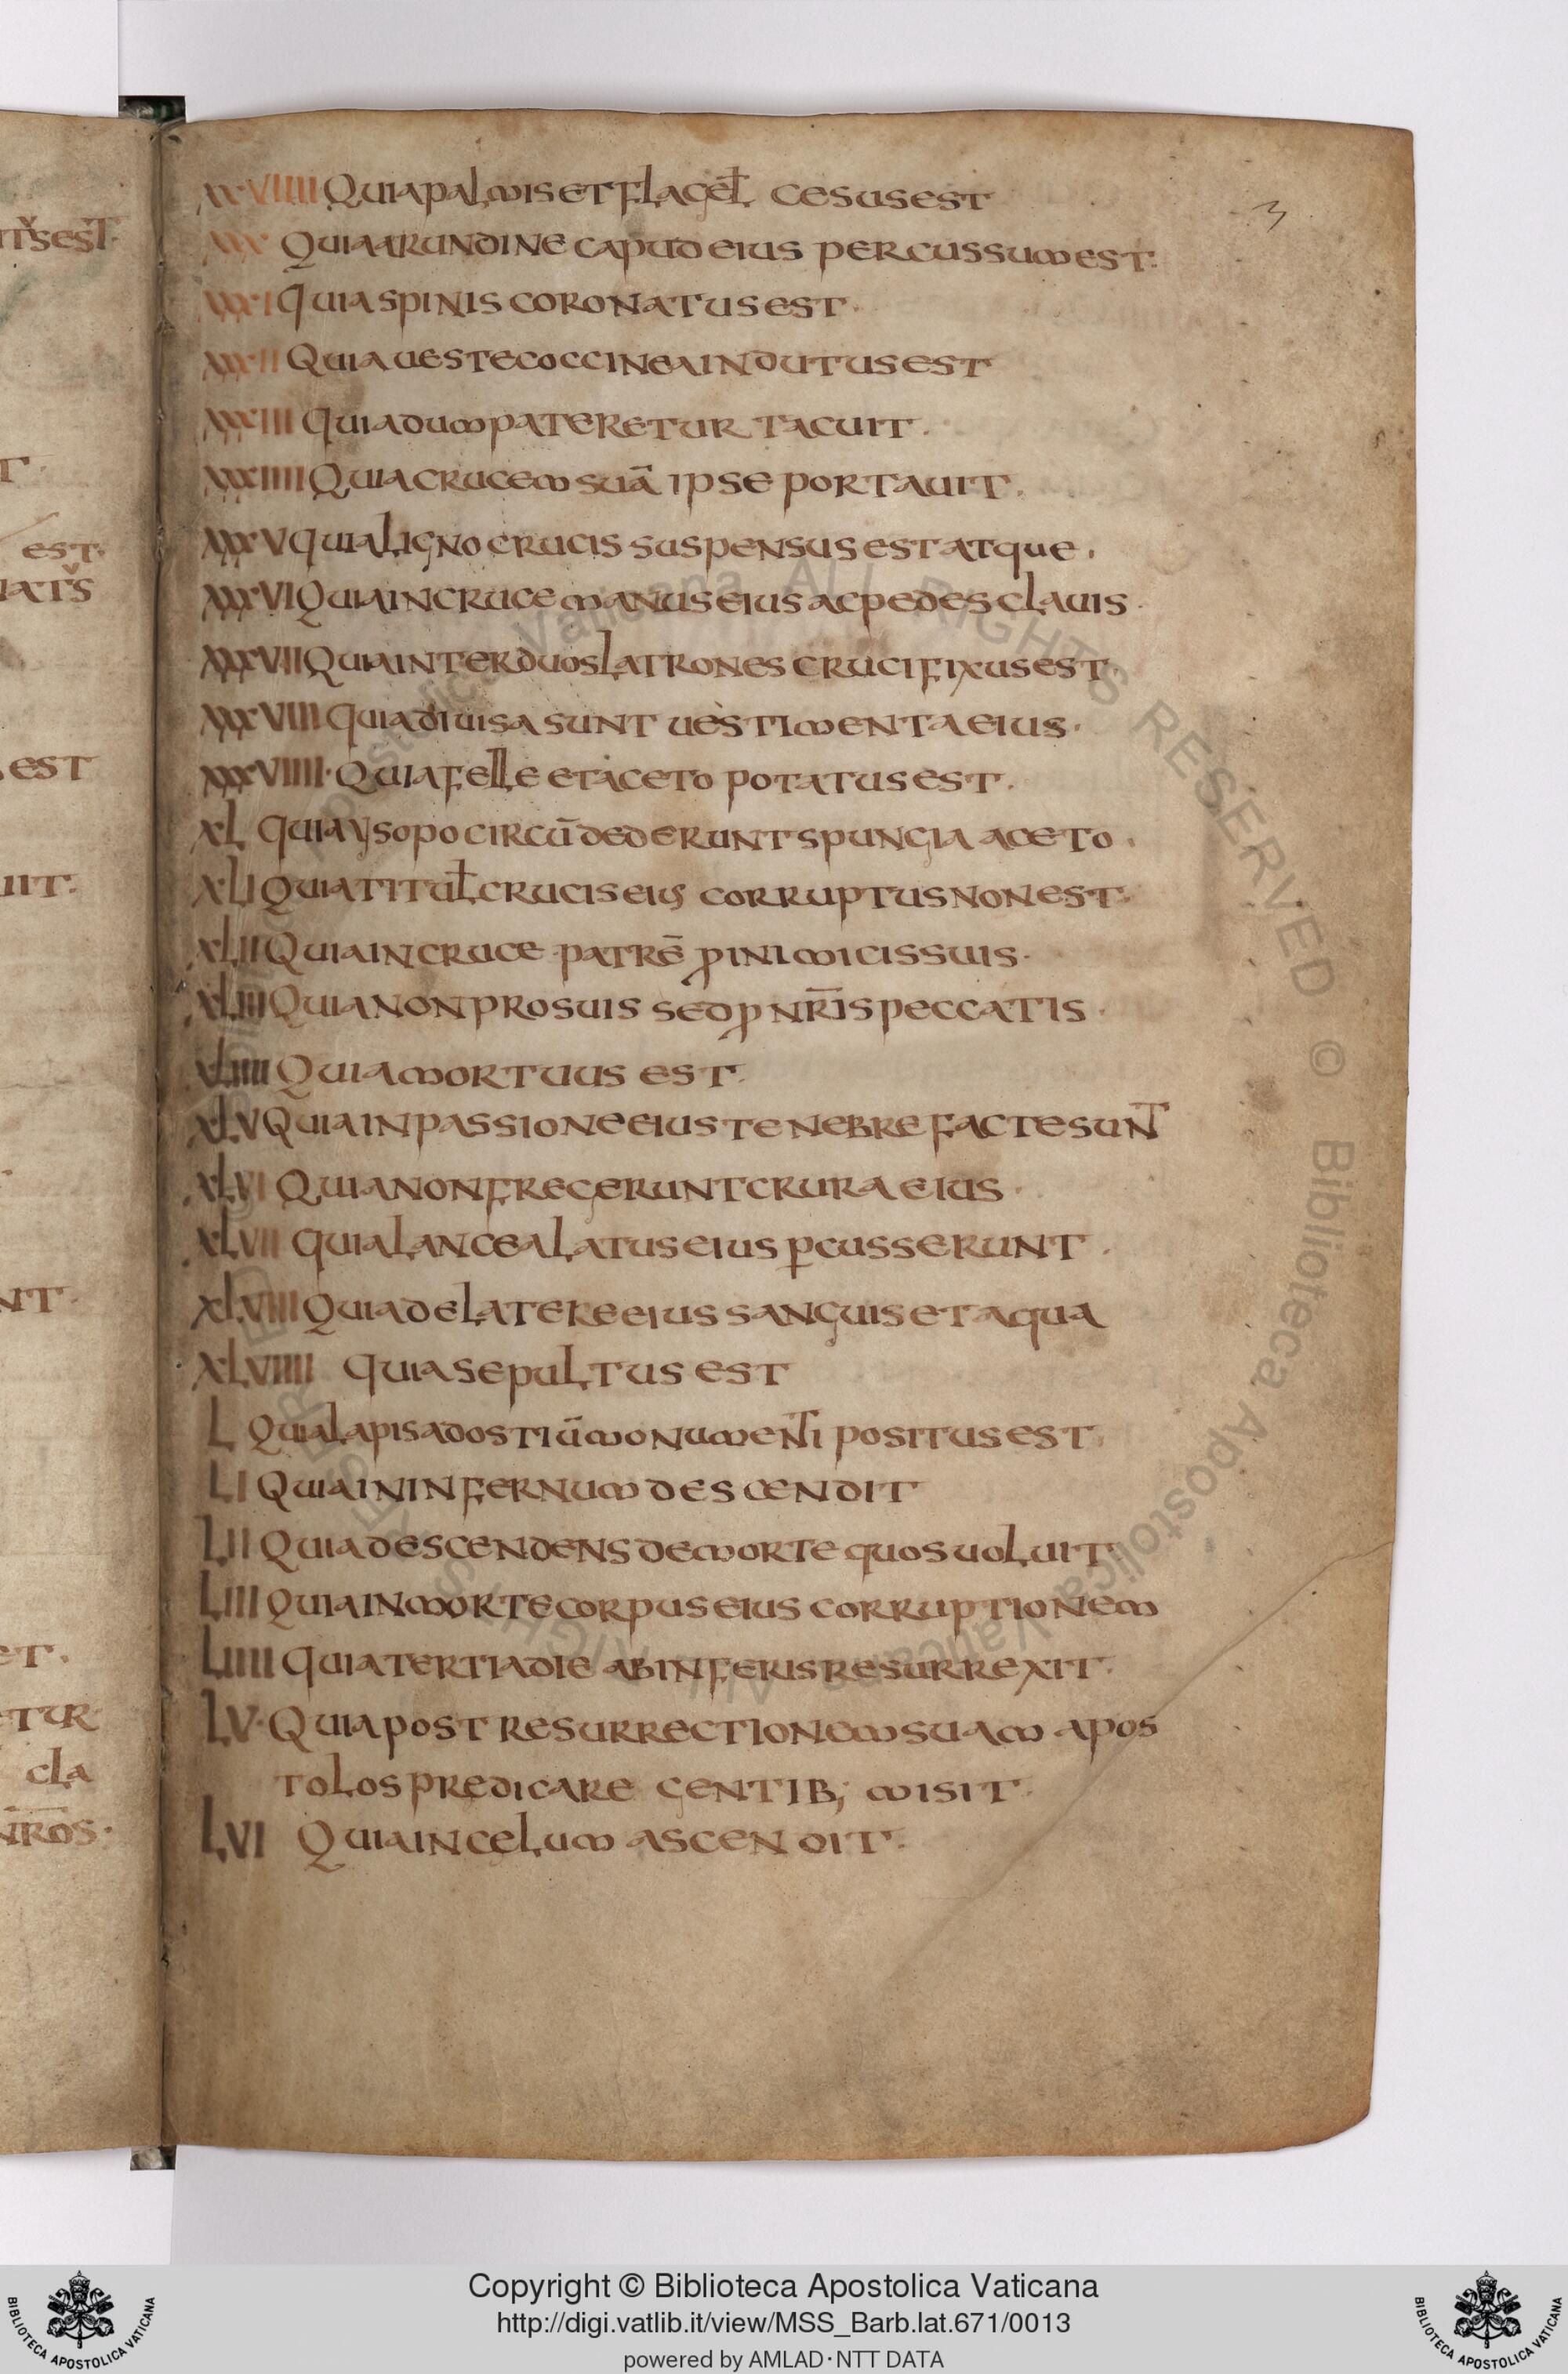 ITS EST
T
EST
IATS
EST
UIT
NT
ET
ETUR
CLA
NROS
3
XXVIIII QUIA PALMIS ET FLAGEL CESUS EST
XXX QUIA ARUNDINE CAPUD EIUS PERCUSSUM EST
XXXI QUIA SPINIS CORONATUS EST
XXXII QUIA UESTE COCCINEA INDUTUS EST
XXXIII QUIA DUM PATERETUR TACUIT
XXXIIII QUIA CRUCEM SUĀ IPSE PORTAUIT
XXXV QUIA LIGNO CRUCIS SUSPENSUS EST ATQUE
XXXVI QUIA IN CRUCE MANUS EIUS AC PEDES CLAUIS
XXXVII QUIA INTER DUOS LATRONES CRUCIFIXUS EST
XXXVIII QUIA DIUISA SUNT UESTIMENTA EIUS
XXXVIIII QUIA FELLE ET ACETO POTATUS EST
XL QUIA YSOPO CIRCŪDEDERUNT SPUNGIA ACETO
XLI QUIA TITUŁ CRUCIS EIUS CORRUPTUS NON EST
XLII QUIA IN CRUCE PATRĒ ꝓ INIMICIS SUIS
XLIII QUIA NON PRO SUIS SED ꝓ NR̄IS PECCATIS
XLIIII QUIA MORTUUS EST
XLV QUIA IN PASSIONE EIUS TENEBRE FACTE SUNT
XLVI QUIA NON FREGERUNT CRURA EIUS
XLVII QUIA LANCEA LATUS EIUS ꝑCUSSERUNT
XLVIII QUIA DE LATERE EIUS SANGUIS ET AQUA
XLVIIII QUIA SEPULTUS EST
L QUIA LAPIS AD OSTIŪ MONUMENTI POSITUS EST
LI QUIA IN INFERNUM DESCENDIT
LII QUIA DESCENDENS DE MORTE QUOS UOLUIT
LIII QUIA IN MORTE CORPUS EIUS CORRUPTIONEM
LIIII QUIA TERTIA DIE AB INFERIS RESURREXIT
LV QUIA POST RESURRECTIONEM SUAM APOS
TOLOS PREDICARE GENTIB; MISIT
LVI QUIA IN CELUM ASCENDIT
Biblioteca Apostolica Vaticana ALL RIGHTS RESERVED ©
Copyright © Biblioteca Apostolica Vaticana
http://digi.vatlib.it/view/MSS_Barb.lat.671/0013
powered by AMLAD·NTT DATA
BIBLIOTECA APOSTOLICA VATICANA
BIBLIOTECA APOSTOLICA VATICANA